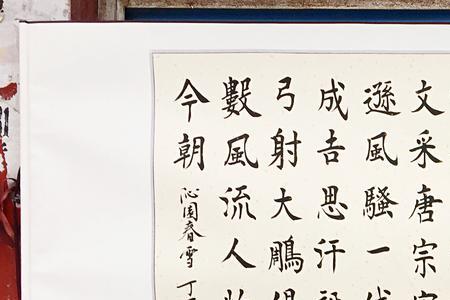 文采唐宗
遜風騷一代
成吉思汗
弓射大鵰俱
數風流人物
今朝
沁園春雪 丁